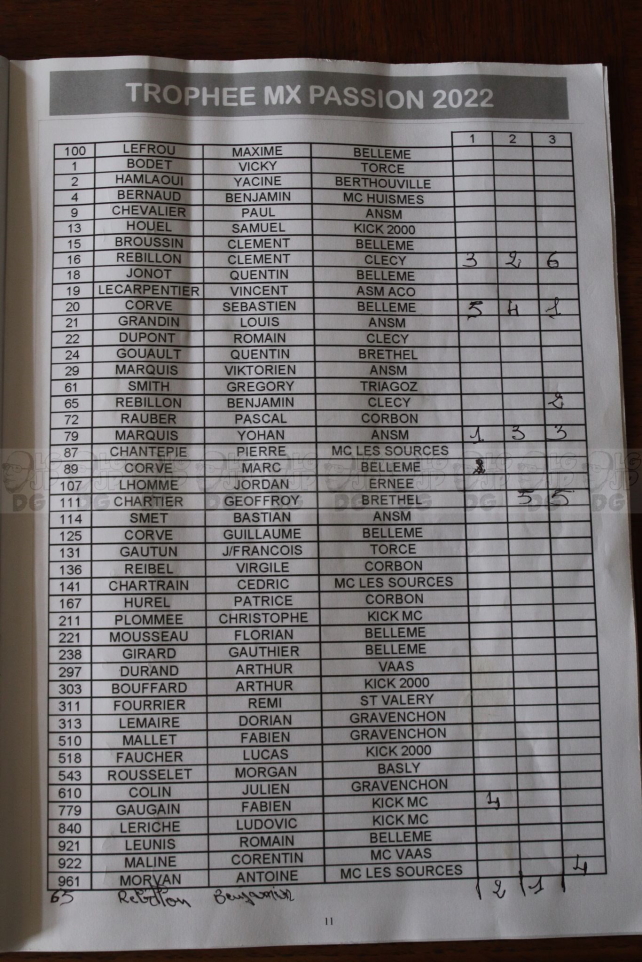 TROPHEE MX PASSION 2022
1 2 3
100 LEFROU MAXIME BELLEME
1 BODET VICKY TORCE
2 HAMLAOUI YACINE BERTHOUVILLE
4 BERNAUD BENJAMIN MC HUISMES
9 CHEVALIER PAUL ANSM
13 HOUEL SAMUEL KICK 2000
15 BROUSSIN CLEMENT BELLEME
16 REBILLON CLEMENT CLECY 3 2 6
18 JONOT QUENTIN BELLEME
19 LECARPENTIER VINCENT ASM ACO
20 CORVE SEBASTIEN BELLEME 5 4 1
21 GRANDIN LOUIS ANSM
22 DUPONT ROMAIN CLECY
24 GOUAULT QUENTIN BRETHEL
29 MARQUIS VIKTORIEN ANSM
61 SMITH GREGORY TRIAGOZ
65 REBILLON BENJAMIN CLECY 2
72 RAUBER PASCAL CORBON
79 MARQUIS YOHAN ANSM 1 3 3
87 CHANTEPIE PIERRE MC LES SOURCES
89 CORVE MARC BELLEME
107 LHOMME JORDAN ERNEE
111 CHARTIER GEOFFROY BRETHEL 5 5
114 SMET BASTIAN ANSM
125 CORVE GUILLAUME BELLEME
131 GAUTUN J/FRANCOIS TORCE
136 REIBEL VIRGILE CORBON
141 CHARTRAIN CEDRIC MC LES SOURCES
167 HUREL PATRICE CORBON
211 PLOMMEE CHRISTOPHE KICK MC
221 MOUSSEAU FLORIAN BELLEME
238 GIRARD GAUTHIER BELLEME
297 DURAND ARTHUR VAAS
303 BOUFFARD ARTHUR KICK 2000
311 FOURRIER REMI ST VALERY
313 LEMAIRE DORIAN GRAVENCHON
510 MALLET FABIEN GRAVENCHON
518 FAUCHER LUCAS KICK 2000
543 ROUSSELET MORGAN BASLY
610 COLIN JULIEN GRAVENCHON
779 GAUGAIN FABIEN KICK MC 4
840 LERICHE LUDOVIC KICK MC
921 LEUNIS ROMAIN BELLEME
922 MALINE CORENTIN MC VAAS
961 MORVAN ANTOINE MC LES SOURCES 4
65 Rebillon Benjamin 2 1
11